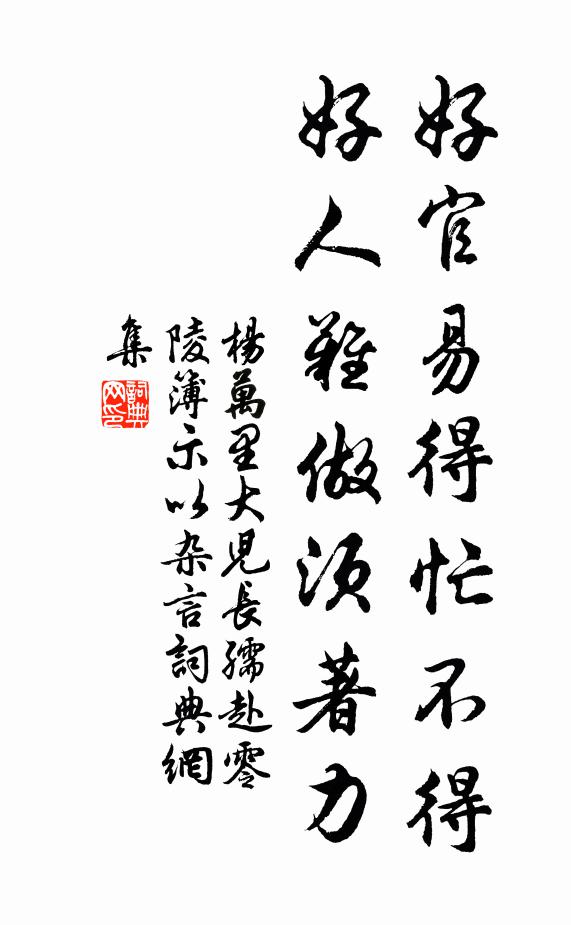 好官易得忙不得
好人難做須著力
楊萬里大兒長孺赴零
陵簿示以杂言詞典網
集
詞典
网印